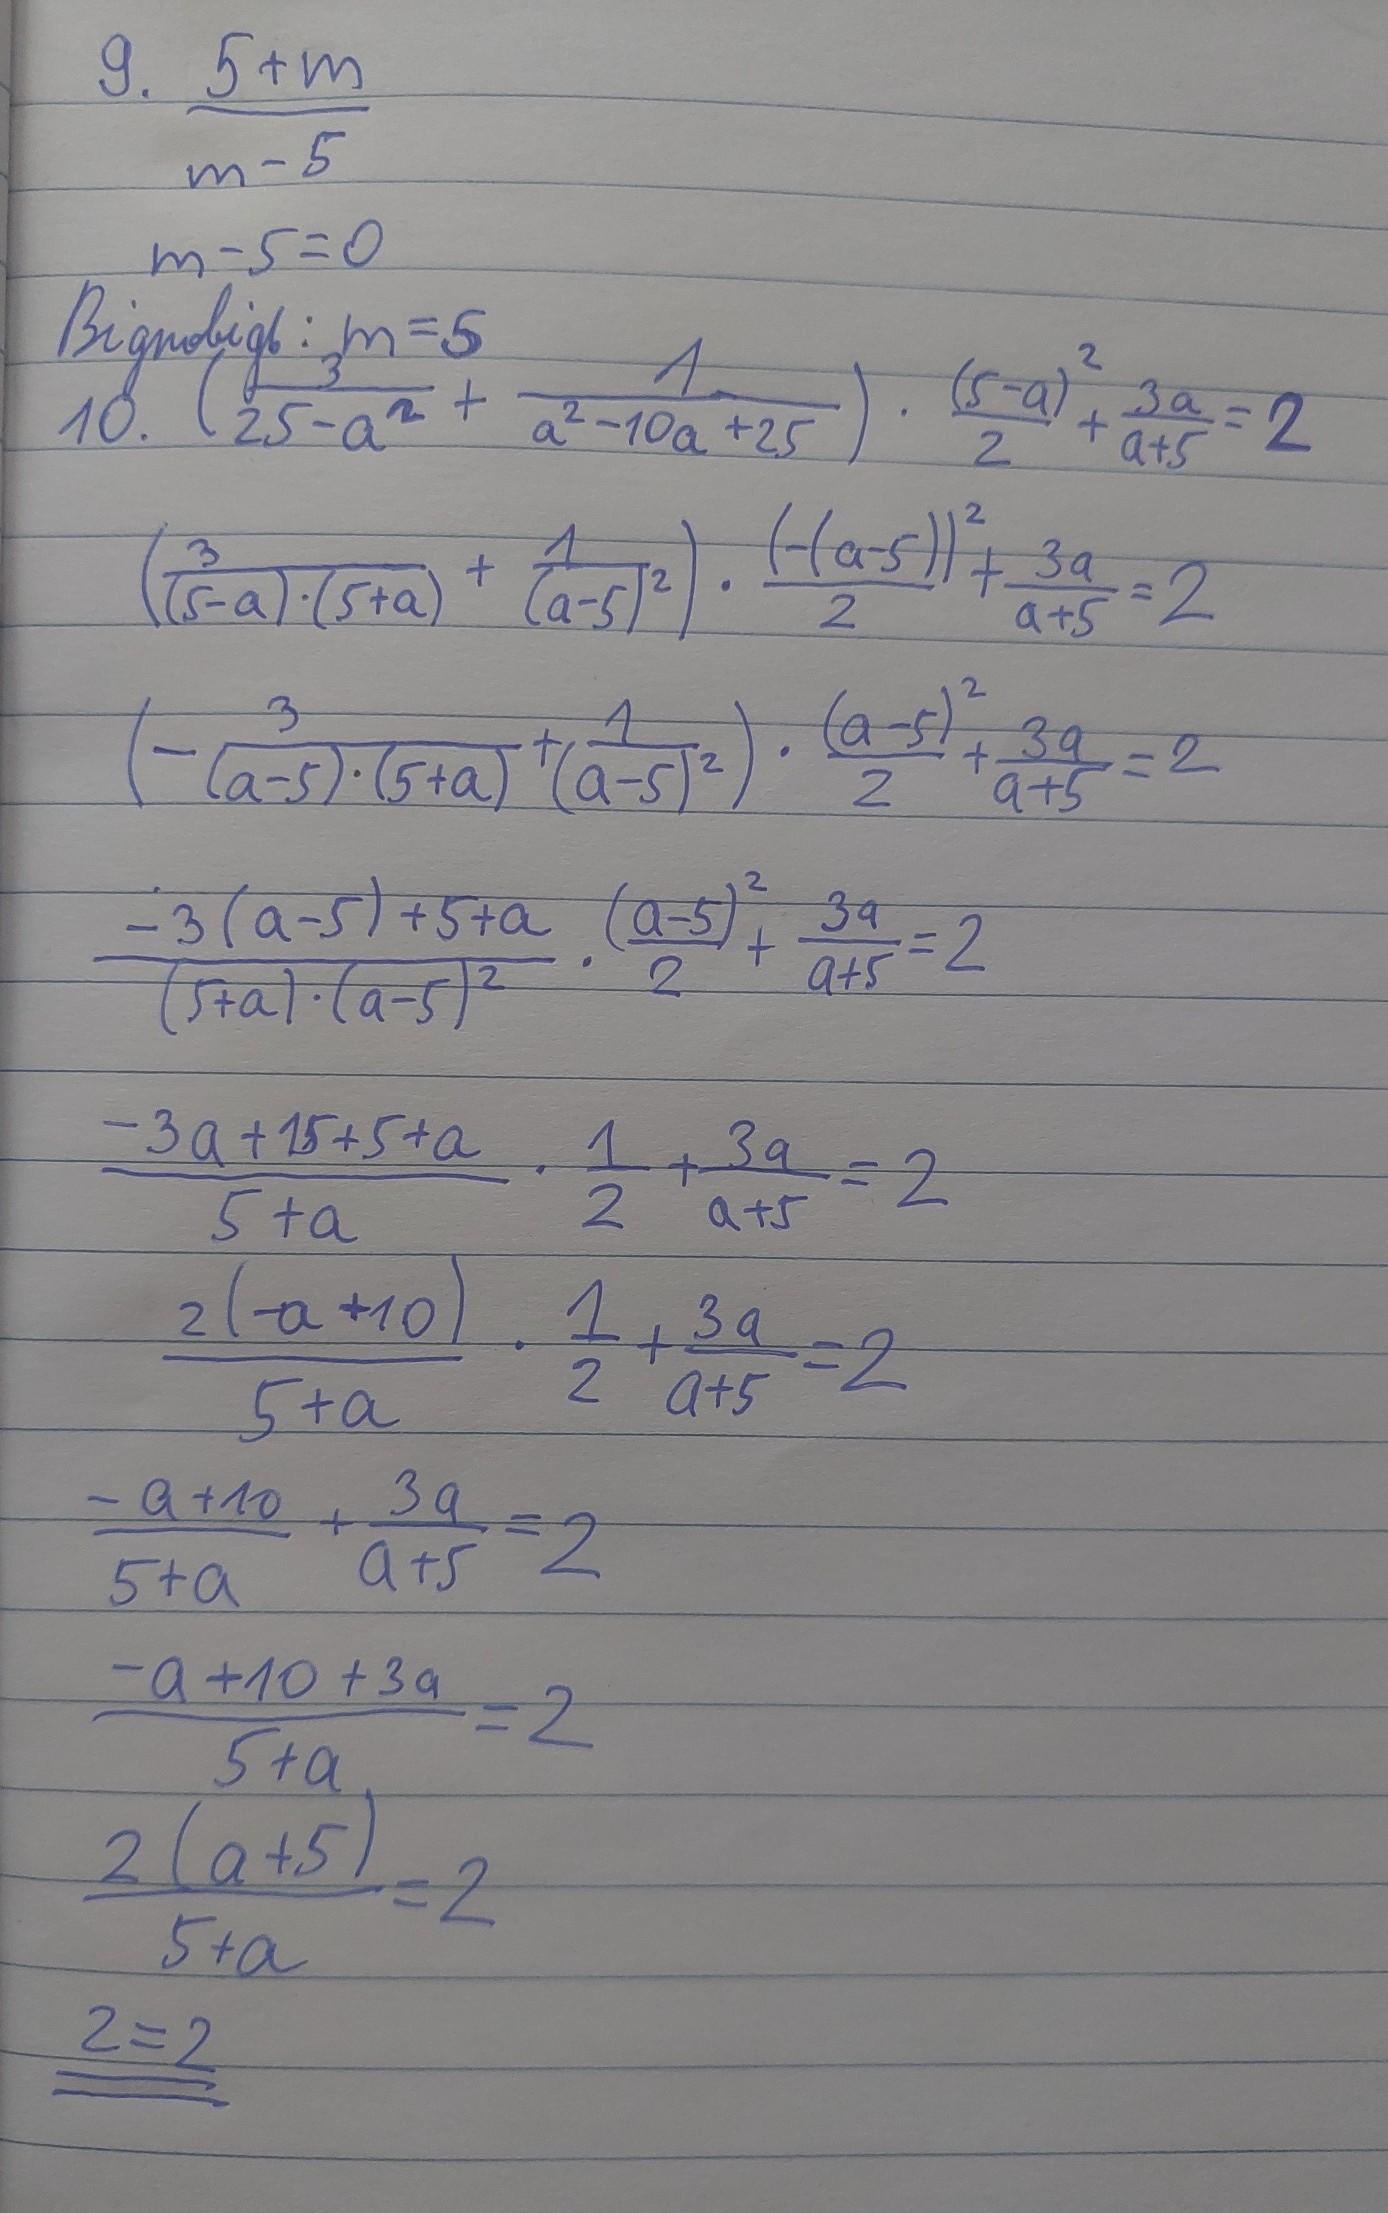 9. (5+m)/(m-5)
m-5=0
Відповідь: m=5
10. (3/(25-a²) + 1/(a²-10a+25)) · (5-a)²/2 + 3a/(a+5) = 2
(3/((5-a)·(5+a)) + 1/(a-5)²) · (-(a-5))²/2 + 3a/(a+5) = 2
(-3/((a-5)·(5+a)) + 1/(a-5)²) · (a-5)²/2 + 3a/(a+5) = 2
(-3(a-5)+5+a)/((5+a)·(a-5)²) · (a-5)²/2 + 3a/(a+5) = 2
(-3a+15+5+a)/(5+a) · 1/2 + 3a/(a+5) = 2
2(-a+10)/(5+a) · 1/2 + 3a/(a+5) = 2
(-a+10)/(5+a) + 3a/(a+5) = 2
(-a+10+3a)/(5+a) = 2
2(a+5)/(5+a) = 2
2=2